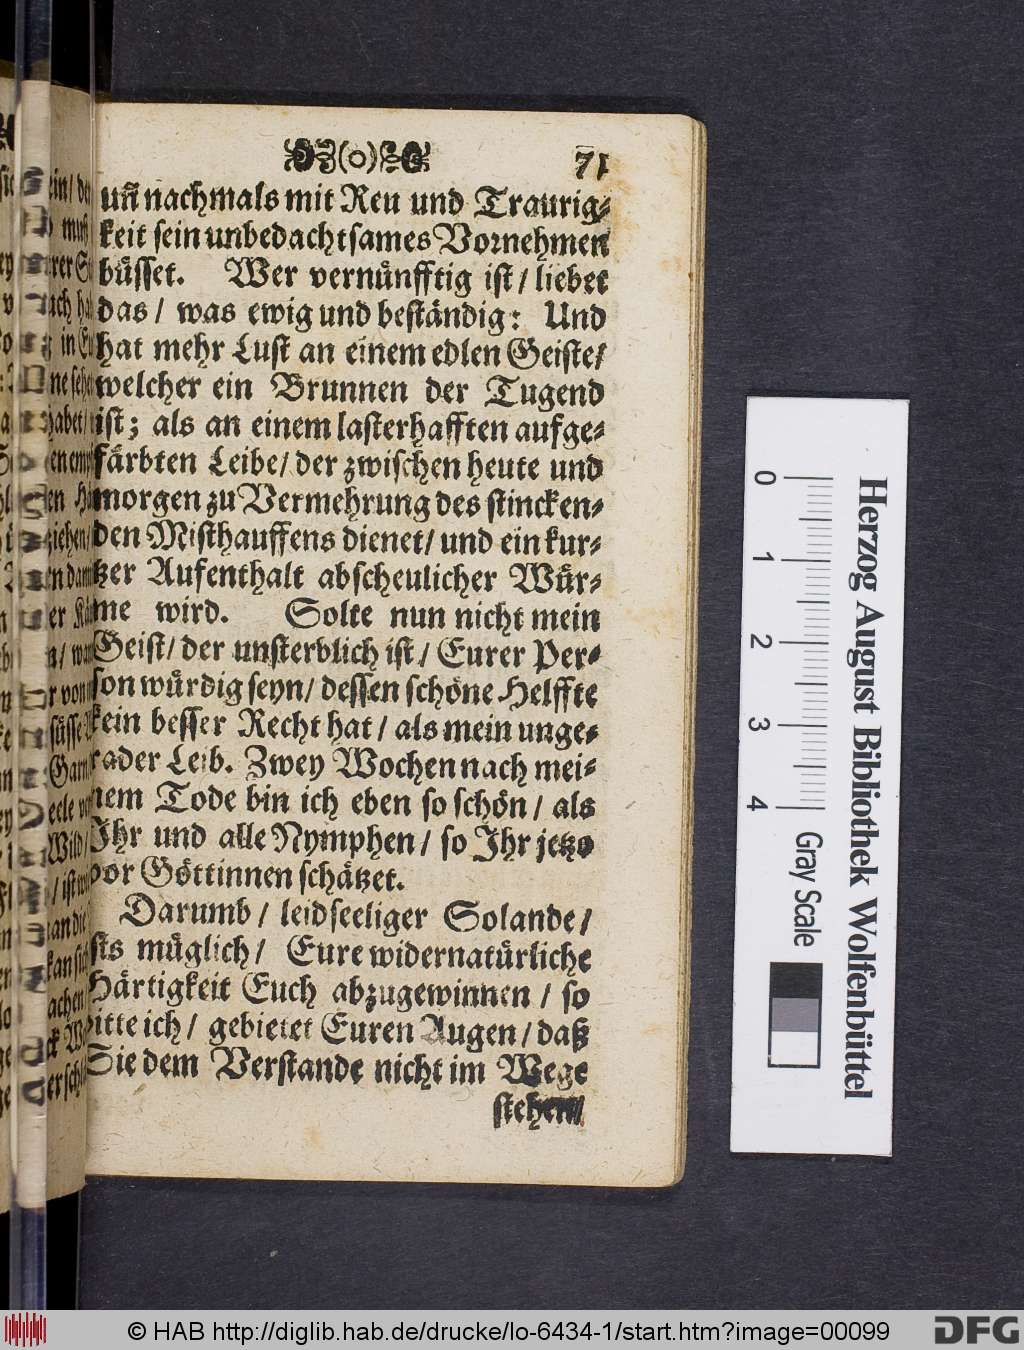 (o) 71
uñ nachmals mit Reu und Traurig-
keit sein unbedachtsames Vornehmen
büsset. Wer vernünfftig ist / liebet
das / was ewig und beständig: Und
hat mehr Lust an einem edlen Geiste /
welcher ein Brunnen der Tugend
ist; als an einem lasterhafften aufge-
färbten Leibe / der zwischen heute und
morgen zu Vermehrung des stincken-
den Misthauffens dienet / und ein kur-
tzer Aufenthalt abscheulicher Wür-
me wird. Solte nun nicht mein
Geist / der unsterblich ist / Eurer Per-
son würdig seyn / dessen schöne Helffte
kein besser Recht hat / als mein unge-
rader Leib. Zwey Wochen nach mei-
nem Tode bin ich eben so schön / als
Ihr und alle Nymphen / so Ihr jetzo
vor Göttinnen schätzet.
Darumb / leidseeliger Solande /
ists müglich / Eure widernatürliche
Härtigkeit Euch abzugewinnen / so
bitte ich / gebietet Euren Augen / daß
Sie dem Verstande nicht im Wege
stehen /
0 1 2 3 4
Gray Scale
Herzog August Bibliothek Wolfenbüttel
© HAB http://diglib.hab.de/drucke/lo-6434-1/start.htm?image=00099
DFG